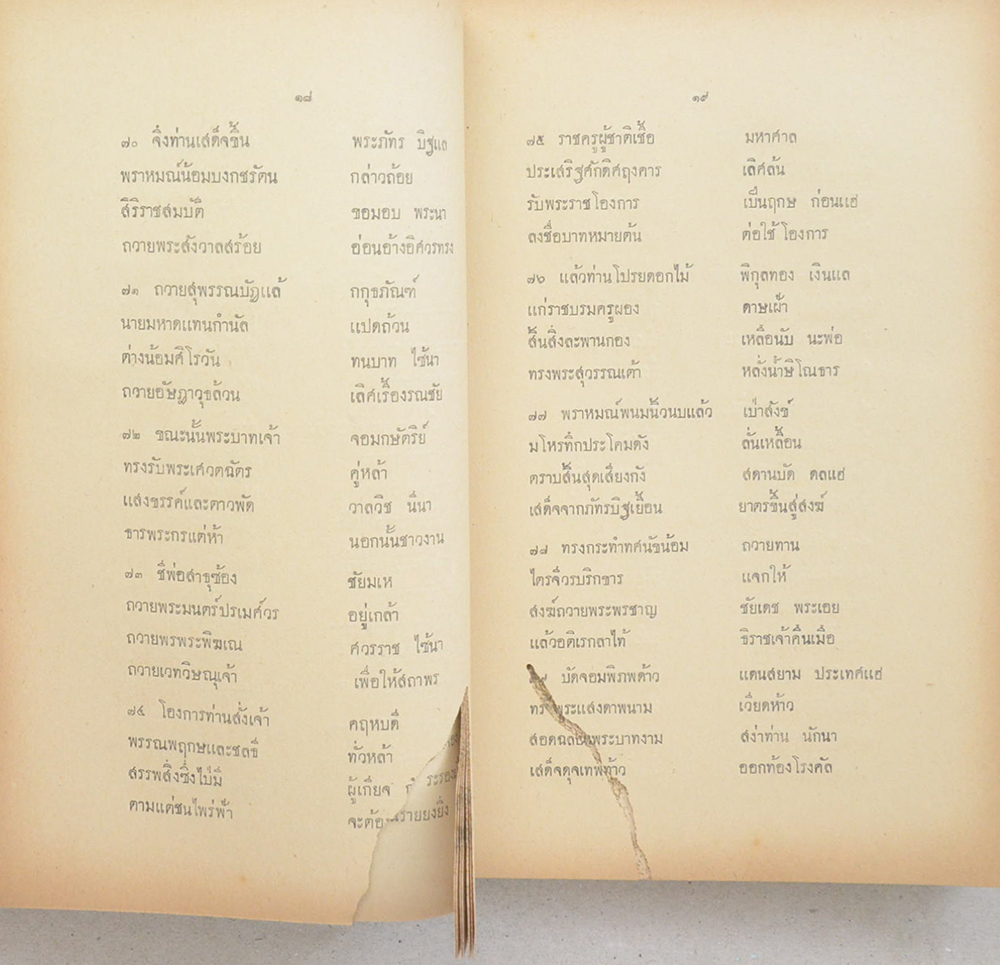 ๑๘
๗๐ จึ่งท่านเสด็จขึ้น พระภัทร บิฐแล
พราหมณ์น้อมบงกชรัตน กล่าวถ้อย
สิริราชสมบัติ ขอมอบ พระนา
ถวายพระสังวาลสร้อย อ่อนอ้างอิศวรทรง
๗๑ ถวายสุพรรณบัฎแล้ กกุธภัณฑ์
นายมหาดแทนกำนัล แปดถ้วน
ต่างน้อมศิโรวัน ทนบาท ไซ้นา
ถวายอัษฎาวุธล้วน เลิศเรื้องรณชัย
๗๒ ขณะนั้นพระบาทเจ้า จอมกษัตริย์
ทรงรับพระเศวตฉัตร คู่หล้า
แสงขรรค์และดาวพัด วาลวิช นีนา
ธารพระกรแต่ห้า นอกนั้นชาวงาน
๗๓ ชีพ่อสาธุซ้อง ชัยมเห
ถวายพระมนตร์ปรเมศ์วร อยู่เกล้า
ถวายพรพระพิฆเณ ศวรราช ไซ้นา
ถวายเวทวิษณุเจ้า เพื่อให้สถาพร
๗๔ โองการท่านสั่งเจ้า คฤหบดี
พรรณพฤกษและชลธี ทั่วหล้า
สรรพสิ่งซึ่งไป่มี ผู้เกียจ
ตามแต่ชนไพร่ฟ้า จะต้อ
๑๙
๗๕ ราชครูผู้ชาติเชื้อ มหาศาล
ประเสริฐศักดิศฤงคาร เลิศล้น
รับพระราชโองการ เป็นฤกษ ก่อนแฮ่
ลงชื่อบาทหมายต้น ต่อใช้ โองการ
๗๖ แล้วท่านโปรยดอกไม้ พิกุลทอง เงินแล
แก่ราชบรมครูผอง ดาษเฝ้า
สิ้นสิ่งละพานกอง เหลือนับ นะพ่อ
ทรงพระสุวรรณเต้า หลั่งน้ำษิโณธาร
๗๗ พราหมณ์พนมน้วนบแล้ว เป่าสังข์
มโหรทึกประโคมดัง ลั่นเหลื้อน
ตราบสิ้นสุดเสียงกัง สดานบัด ดลแฮ่
เสด็จจากภัทรบิฐเยื้อน ยาตรขึ้นสู่สงฆ์
๗๘ ทรงกระทำทศนัขน้อม ถวายทาน
ไตรจีวรบริกขาร แจกให้
สงฆ์ถวายพระพรชาญ ชัยเดช พระเอย
แล้วอติเรกลาไท้ ธิราชเจ้าคืนเมื่อ
บัดจอมพิภพด้าว แดนสยาม ประเทศแฮ่
พระแสงดาพนาม เวียดห้าว
พระบาทงาม สง่าท่าน นักนา
เสด็จดุจเทพท้าว ออกท้องโรงคัล